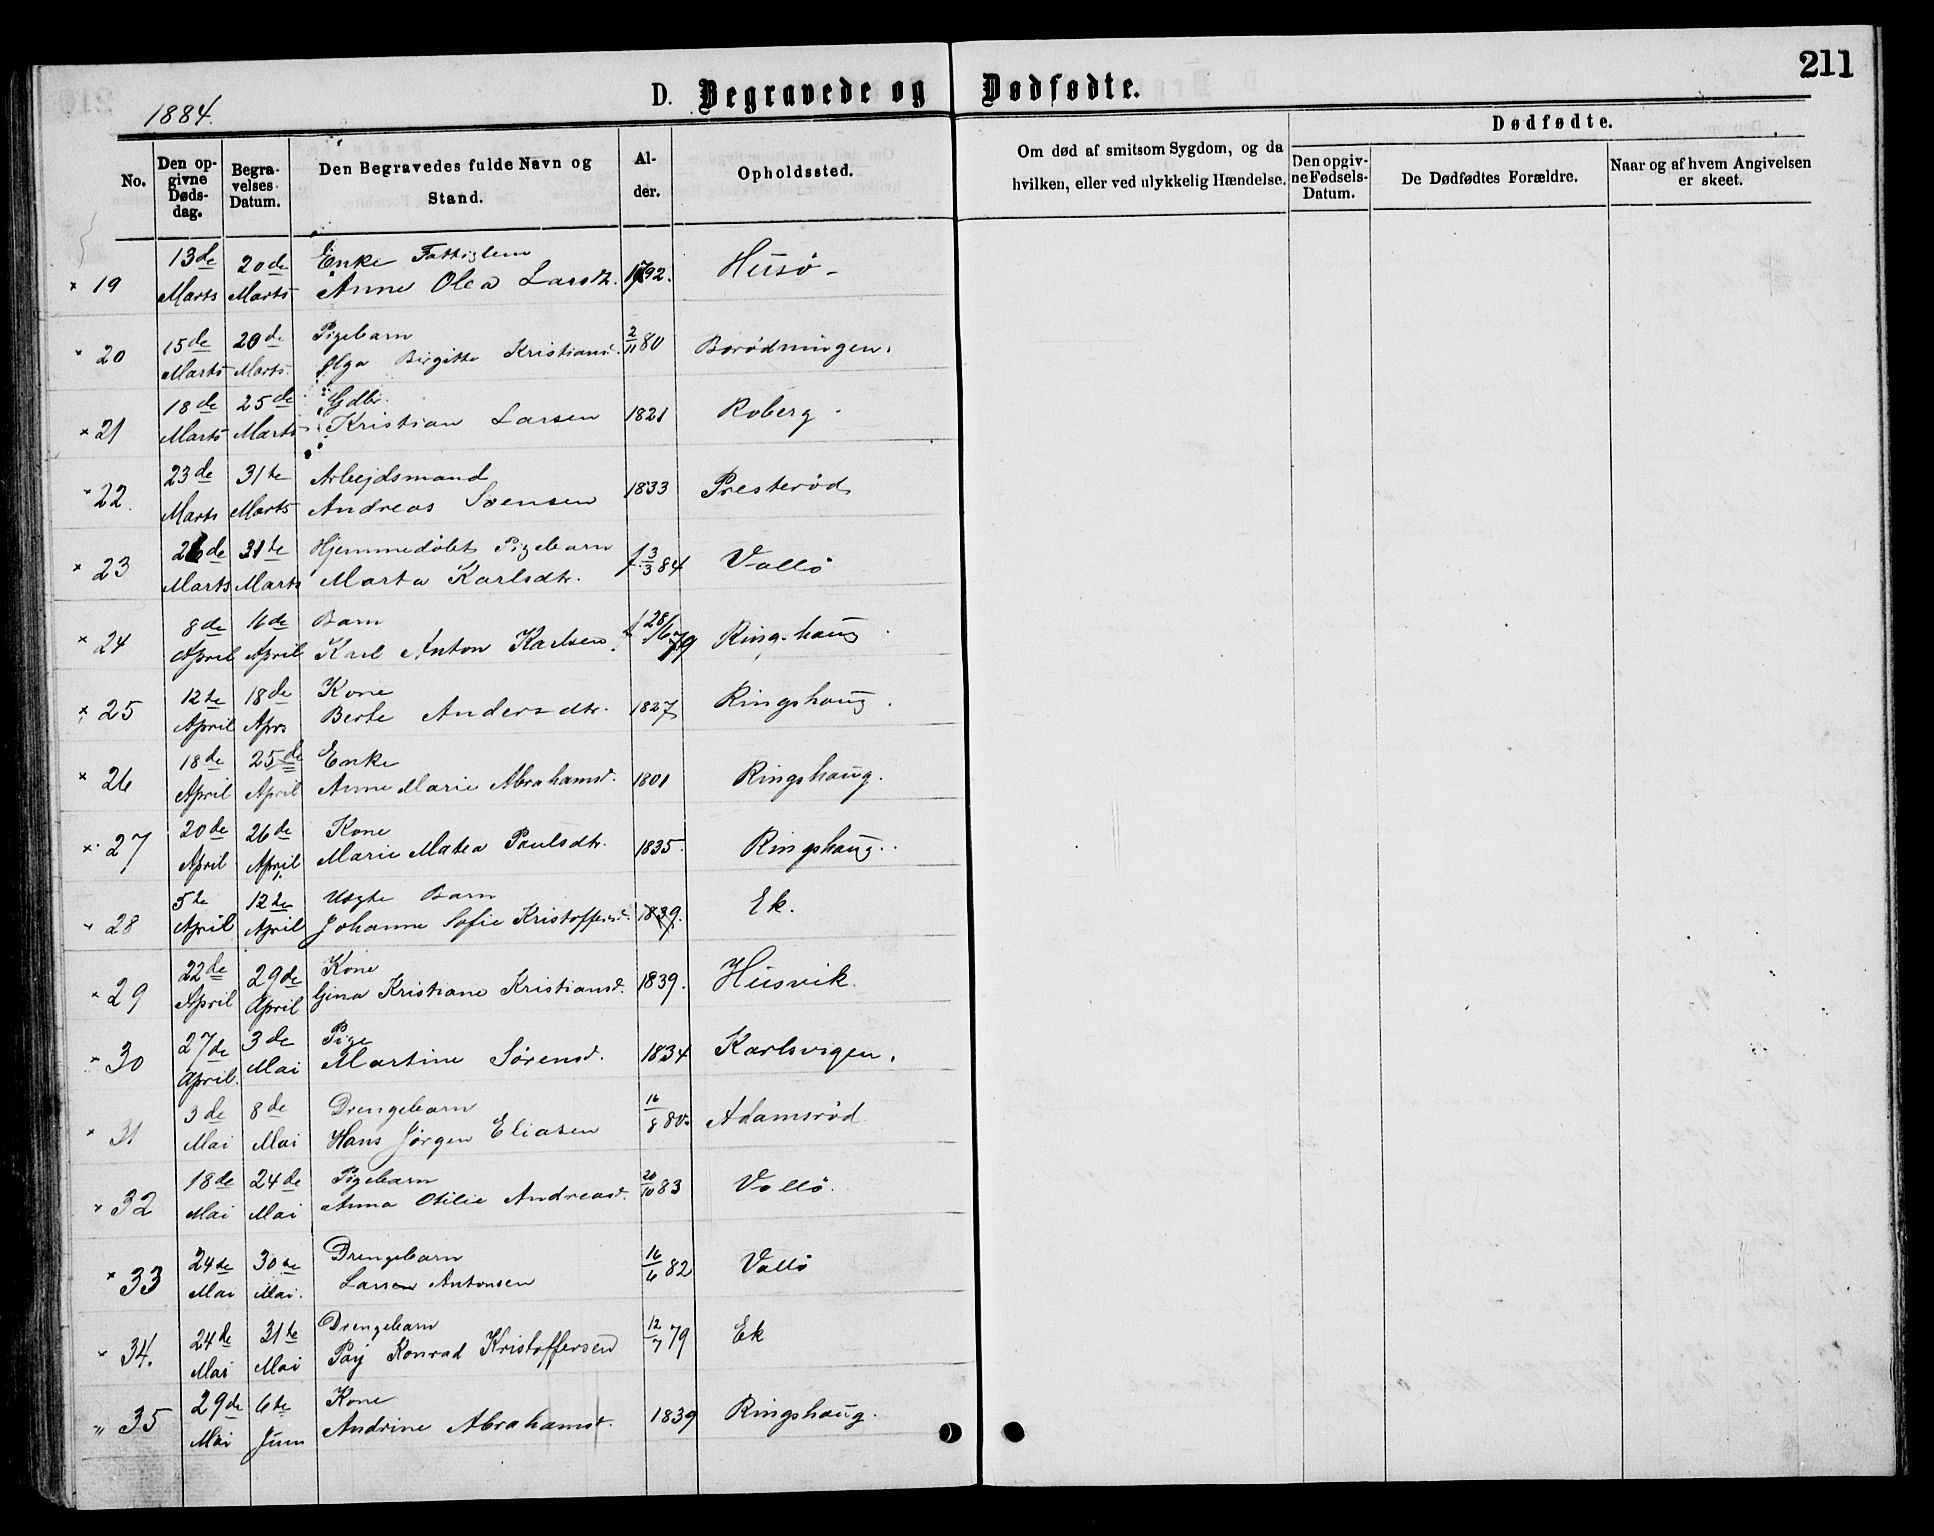 211
1884.
D. Begravede og Dødfødte.
No.
Den opgivne Dødsdag.
Begravelses Datum.
Den Begravedes fulde Navn og Stand.
Alder.
Opholdssted.
Om død af smitsom Sygdom, og da hvilken, eller ved ulykkelig Hændelse.
Dødfødte.
Den opgivne Fødsels-Datum.
De Dødfødtes Forældre.
Naar og af hvem Angivelsen er skeet.
× 19 13de Marts 20de Marts Enke Fattiglem Anne Olea Larsdt. 1792. Husö
× 20 15de Marts 20de Marts Pigebarn Olga Birgitte Kristiansd. 2/11 80 Borödningen.
× 21 18de Marts 25de Marts Gdbr. Kristian Larsen 1821 Roberg
× 22. 23de Marts 31te Marts Arbejdsmand Andreas Svensen 1833 Presteröd
× 23 26de Marts 31te Marts Hjemmedöbt Pigebarn Marta Karlsdtr. f. 3/3 84 Vallö
× 24 8de April 16de April Barn Karl Anton Karlsen f 28/6 79 Ringshaug
× 25 12te April 18de Apr Kone Berte Andersdtr. 1827 Ringshaug.
× 26 18de April 25de April Enke Anne Marie Abrahamsd. 1801 Ringshaug.
× 27 20de April 26de April Kone Marie Matea Paulsdtr. 1835. Ringshaug.
× 28 5te April 12te April Uægte Barn Johanne Sofie Kristoffersd. 1839. Ek.
× 29 22de April 29de April Kone Gina Kristiane Kristiansd. 1839. Husvik.
× 30 27de April. 3de Mai Pige Martine Sörensd. 1834 Karlsvigen.
× 31 3de Mai 8de Mai Drengebarn Hans Jörgen Eliasen 16/8 80. Adamsröd
× 32 18de Mai 24de Mai Pigebarn Anna Otilie Andreasd. 20/10 83 Vallö.
× 33 24de Mai 30te Mai. Drengebarn Larsen Antonsen 16/6 82 Vallö
× 34. 24de Mai 31te Mai Drengebarn Konrad Kristoffersen 12/7 79 Ek
" 35 29de Mai 6te Juni Kone Andrine Abrahamsd. 1839 Ringshaug.